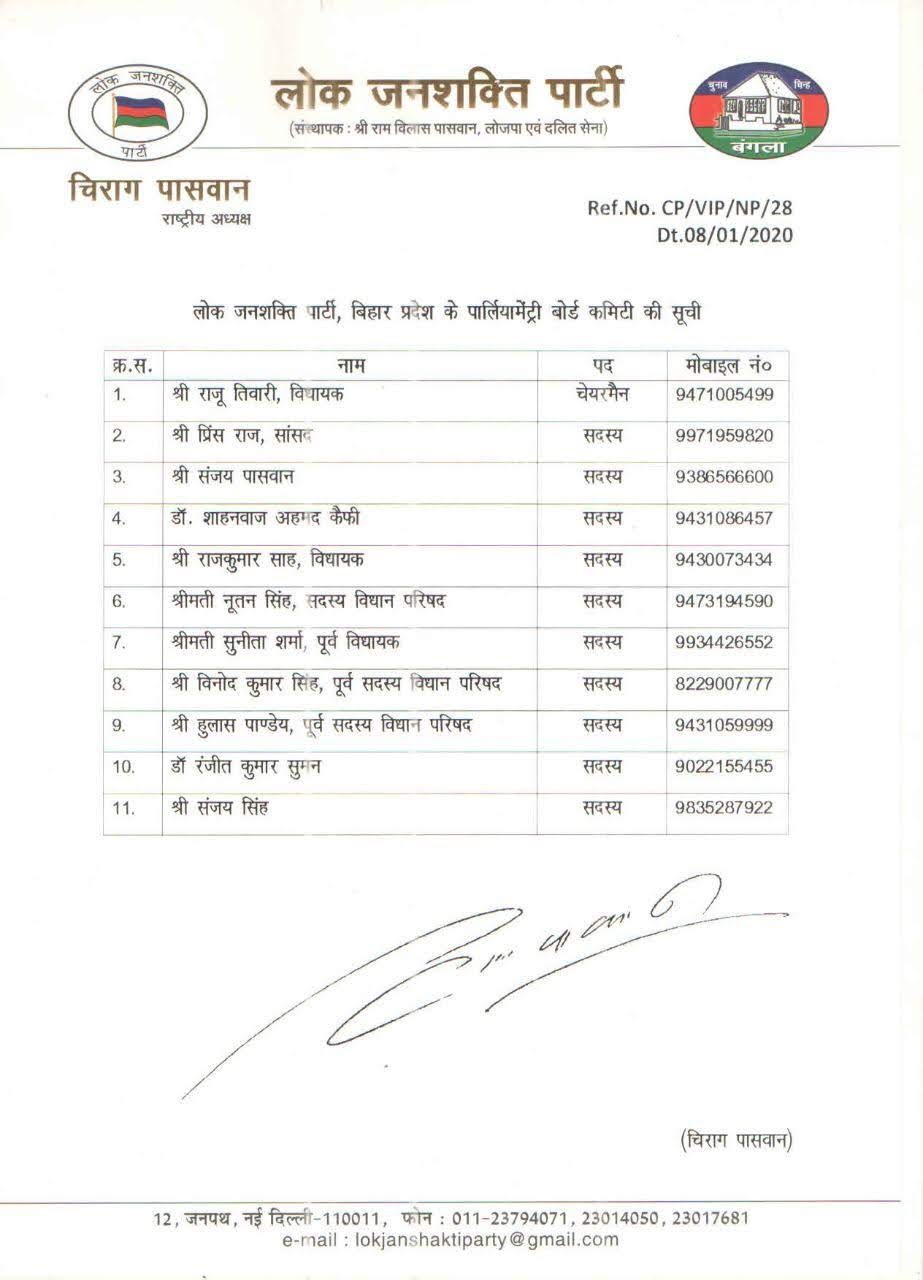 लोक जनशक्ति
पार्टी
लोक जनशक्ति पार्टी
(संस्थापक : श्री राम विलास पासवान, लोजपा एवं दलित सेना)
चुनाव चिन्ह
बंगला
चिराग पासवान
राष्ट्रीय अध्यक्ष
Ref.No. CP/VIP/NP/28
Dt.08/01/2020
लोक जनशक्ति पार्टी, बिहार प्रदेश के पार्लियामेंट्री बोर्ड कमिटी की सूची
क्र.स. नाम पद मोबाइल नं०
1. श्री राजू तिवारी, विधायक चेयरमैन 9471005499
2. श्री प्रिंस राज, सांसद सदस्य 9971959820
3. श्री संजय पासवान सदस्य 9386566600
4. डॉ. शाहनवाज अहमद कैफी सदस्य 9431086457
5. श्री राजकुमार साह, विधायक सदस्य 9430073434
6. श्रीमती नूतन सिंह, सदस्य विधान परिषद सदस्य 9473194590
7. श्रीमती सुनीता शर्मा, पूर्व विधायक सदस्य 9934426552
8. श्री विनोद कुमार सिंह, पूर्व सदस्य विधान परिषद सदस्य 8229007777
9. श्री हुलास पाण्डेय, पूर्व सदस्य विधान परिषद सदस्य 9431059999
10. डॉ रंजीत कुमार सुमन सदस्य 9022155455
11. श्री संजय सिंह सदस्य 9835287922
(चिराग पासवान)
12, जनपथ, नई दिल्ली-110011, फोन : 011-23794071, 23014050, 23017681
e-mail : lokjanshaktiparty@gmail.com